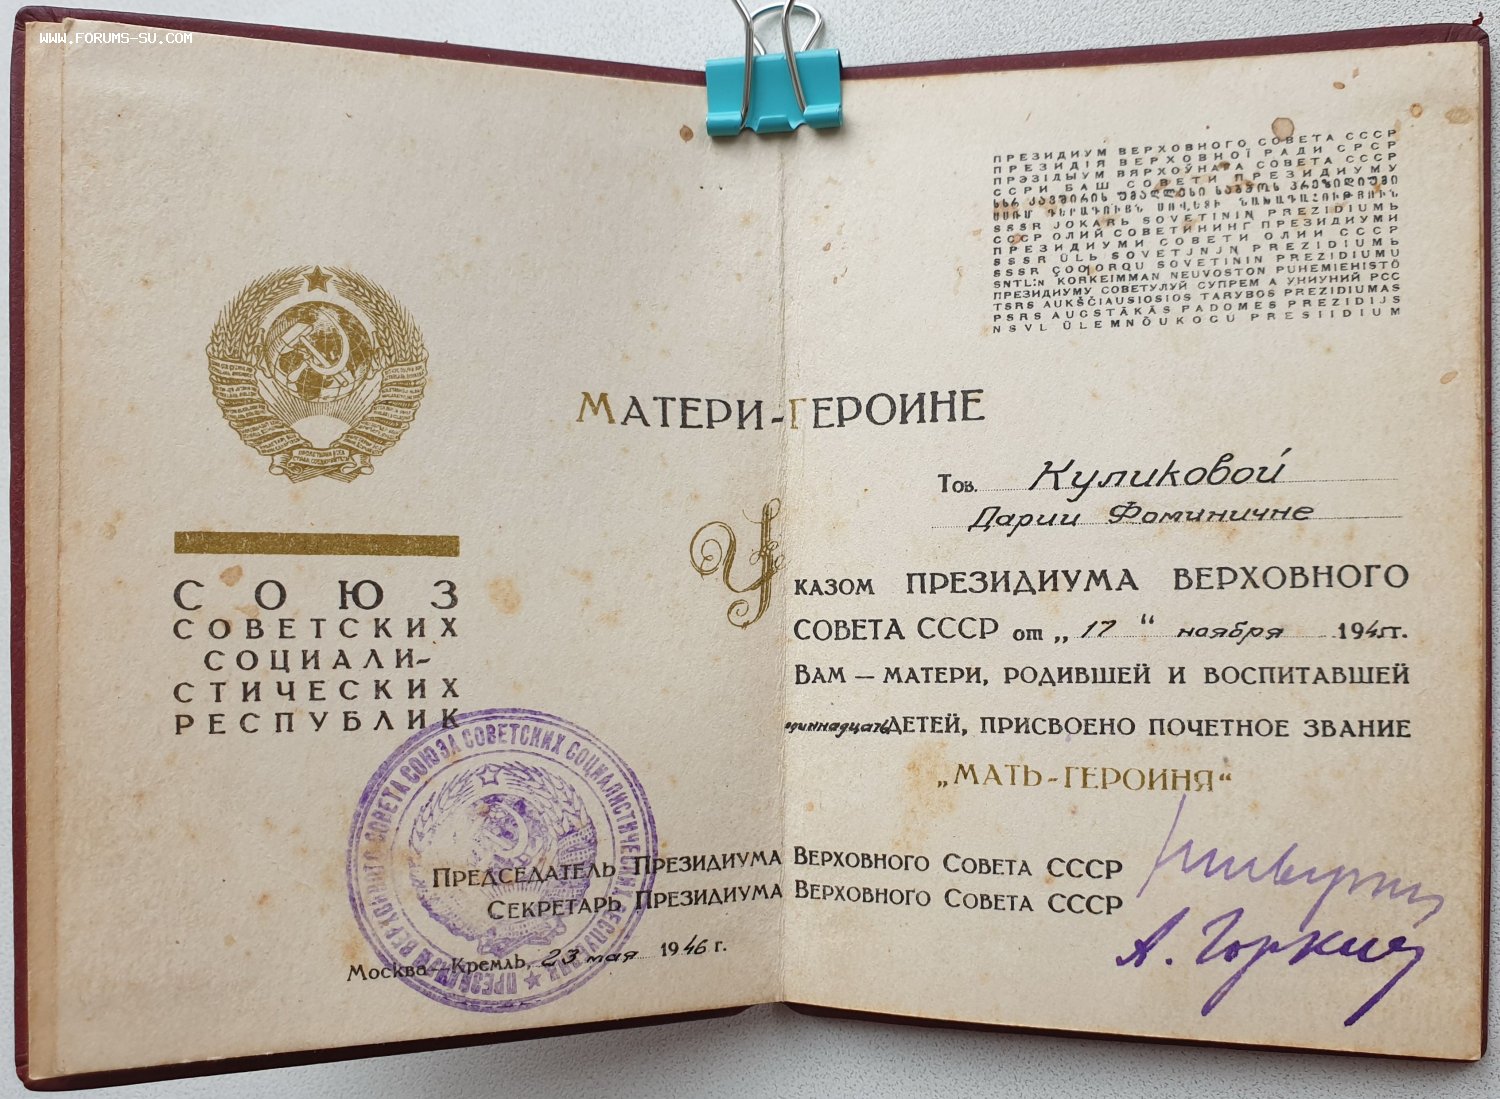 WWW.FORUMS-SU.COM
СОЮЗ
СОВЕТСКИХ
СОЦИАЛИ-
СТИЧЕСКИХ
РЕСПУБЛИК
ПРЕЗИДИУМ ВЕРХОВНОГО СОВЕТА СССР
ПРЕЗИДІЯ ВЕРХОВНОЇ РАДИ СРСР
ПРЭЗІДЫУМ ВЯРХОЎНАГА СОВЕТА СССР
ССРИ БАШ СОВЕТИ ПРЕЗИДИУМУ
SSSR JOKARЬ SOVETININ PREZIDIUMЬ
СССР ОЛИЙ СОВЕТИНИНГ ПРЕЗИДИУМИ
ПРЕЗИДИУМИ СОВЕТИ ОЛИИ СССР
SSSR ÜLЬ SOVETJNJN PREZIDIUMЬ
SSSR ÇOQORQU SOVETININ PREZIDIUMU
SNTL:N KORKEIMMAN NEUVOSTON PUHEMIEHISTÖ
ПРЕЗИДИУМУ СОВЕТУЛУЙ СУПРЕМ А УНИУНИЙ РСС
TSRS AUKŠČIAUSIOSIOS TARYBOS PREZIDIUMAS
PSRS AUGSTĀKĀS PADOMES PREZIDIJS
NSVL ÜLEMNÕUKOGU PRESIIDIUM
МАТЕРИ-ГЕРОИНЕ
Тов. Куликовой
Дарии Фоминичне
УКАЗОМ ПРЕЗИДИУМА ВЕРХОВНОГО
СОВЕТА СССР от „17“ ноября 1945г.
ВАМ — МАТЕРИ, РОДИВШЕЙ И ВОСПИТАВШЕЙ
одиннадцать ДЕТЕЙ, ПРИСВОЕНО ПОЧЕТНОЕ ЗВАНИЕ
„МАТЬ-ГЕРОИНЯ“
ПРЕДСЕДАТЕЛЬ ПРЕЗИДИУМА ВЕРХОВНОГО СОВЕТА СССР
СЕКРЕТАРЬ ПРЕЗИДИУМА ВЕРХОВНОГО СОВЕТА СССР
А. Горкин
МОСКВА—КРЕМЛЬ, 23 мая 1946 г.
ПРЕЗИДИУМ ВЕРХОВНОГО СОВЕТА СОЮЗА СОВЕТСКИХ СОЦИАЛИСТИЧЕСКИХ РЕСПУБЛИК